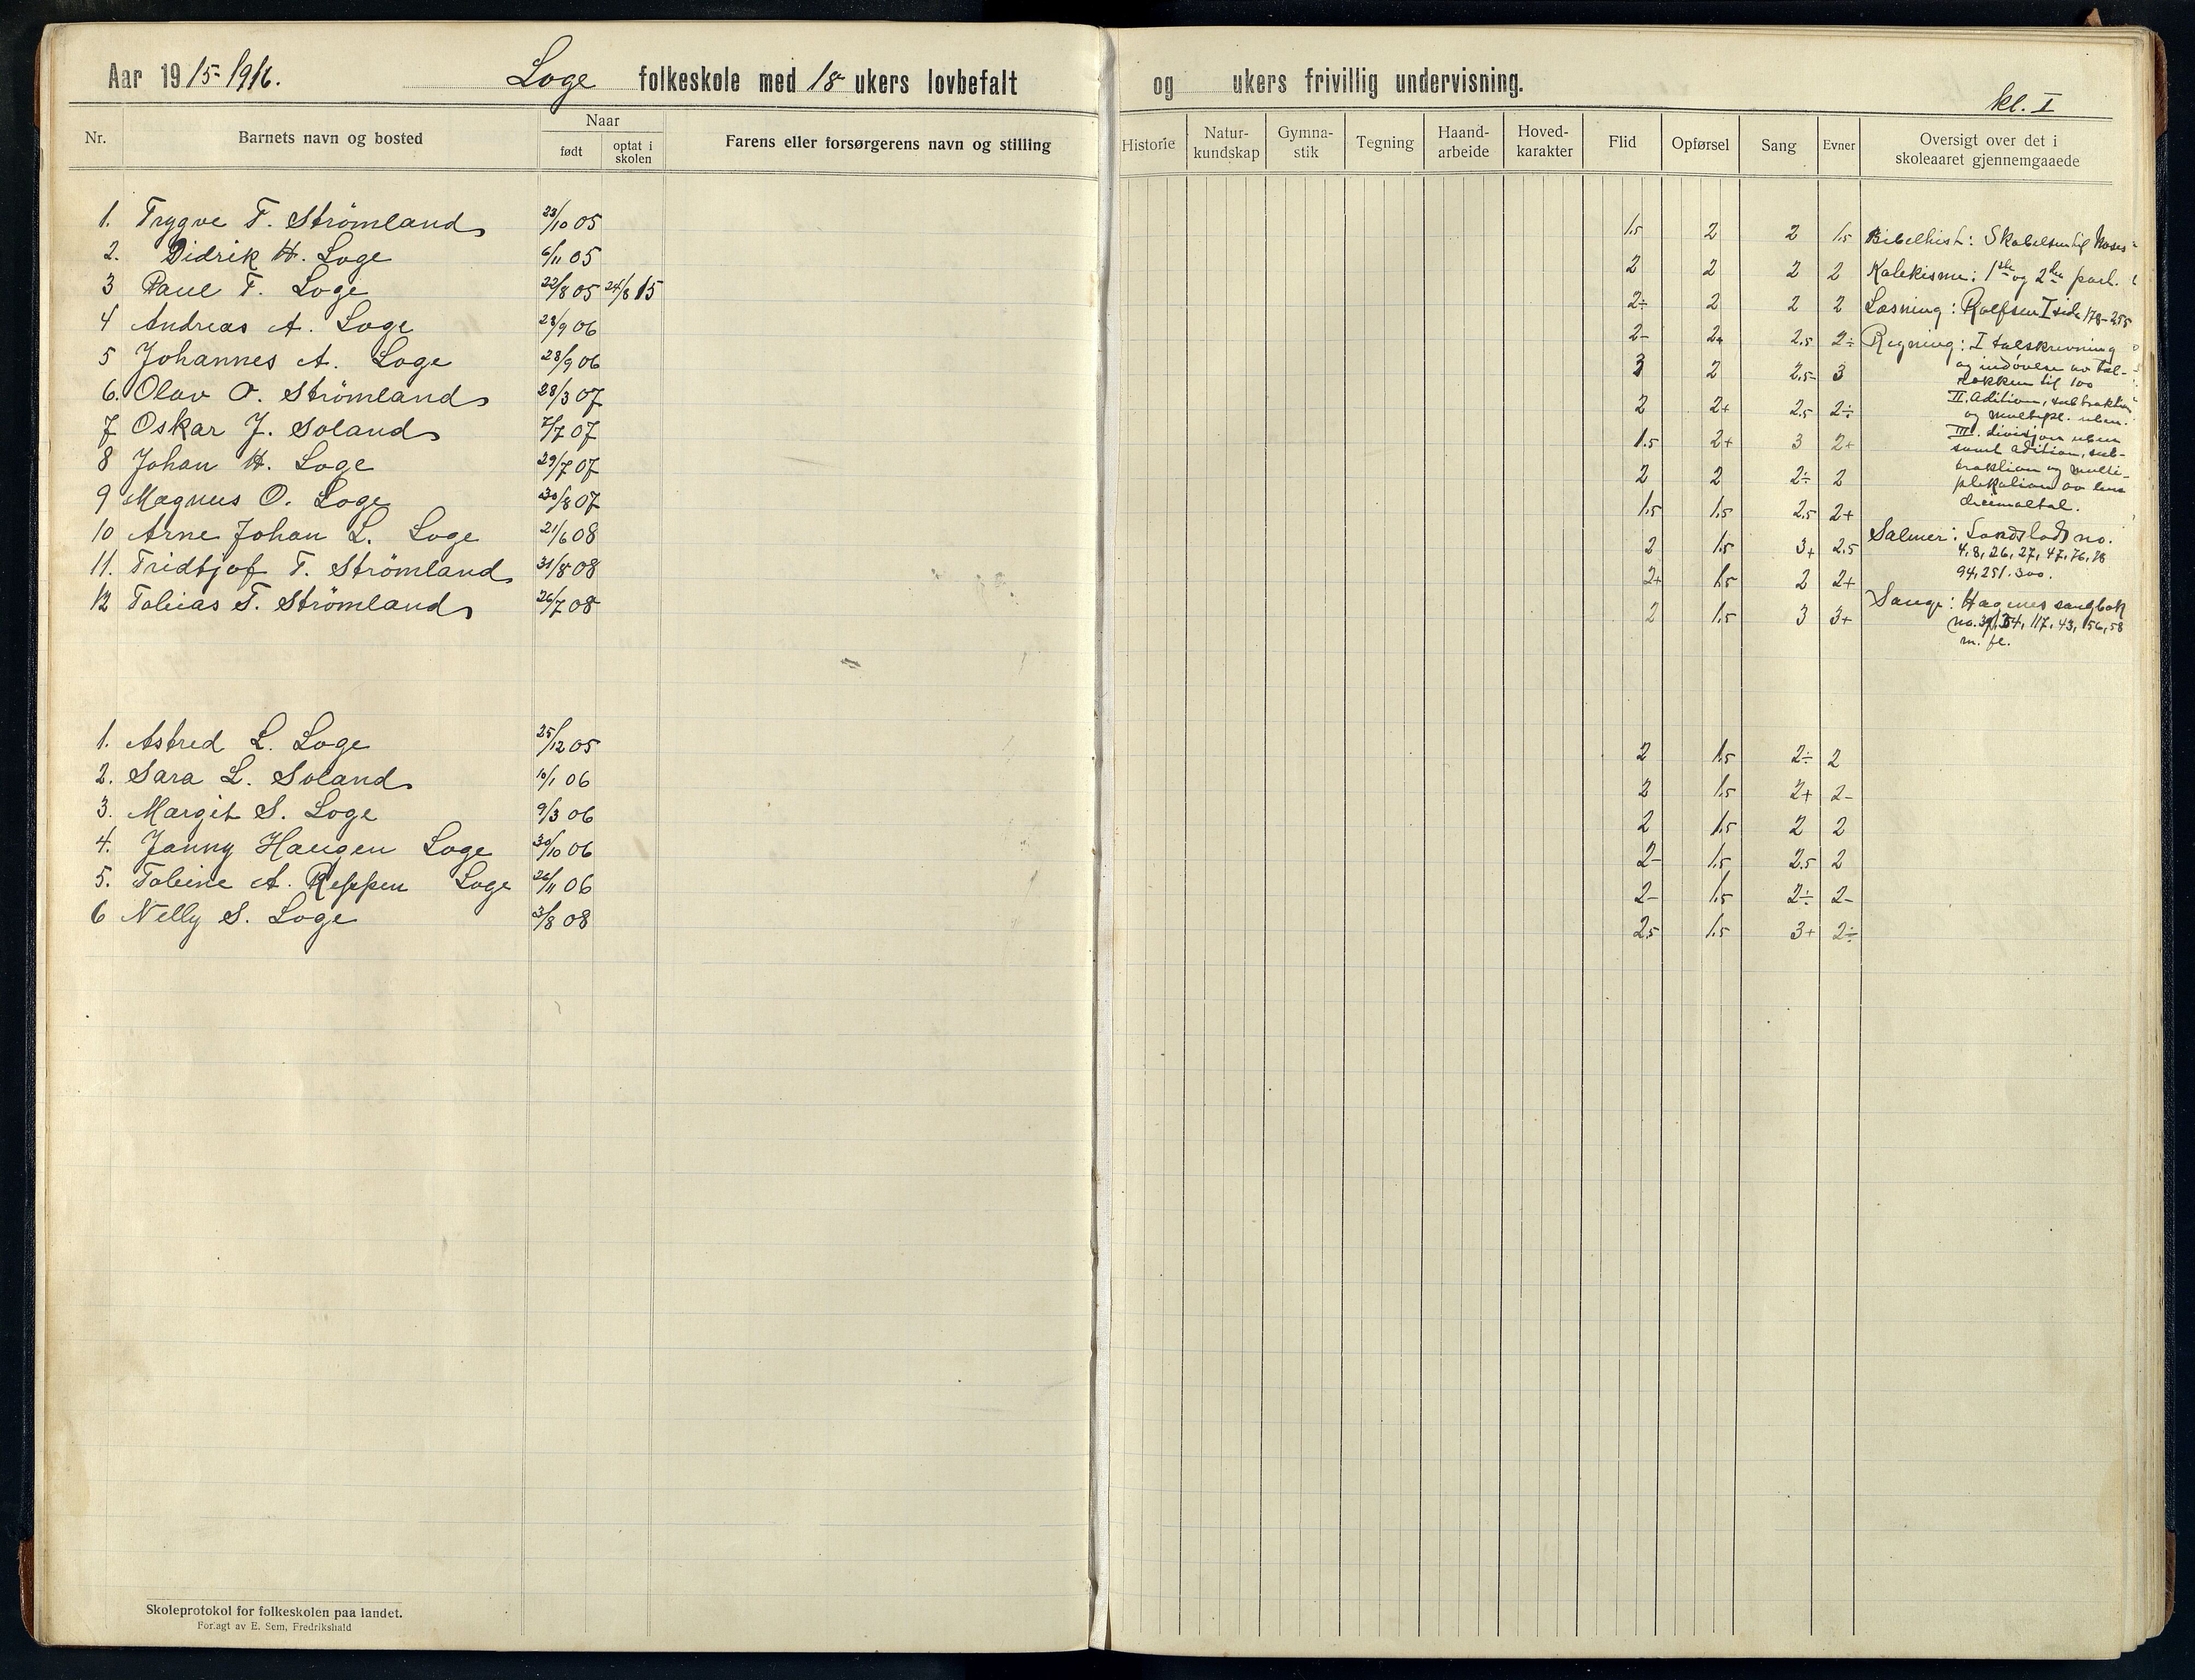 Aar 1915-1916. Loge folkeskole med 18 ukers lovbefalt og ukers frivillig undervisning.
kl. I
Nr. Barnets navn og bosted Naar født optat i skolen Farens eller forsørgerens navn og stilling Historie Natur-kundskap Gymna-stik Tegning Haand-arbeide Hoved-karakter Flid Opførsel Sang Evner Oversigt over det i skoleaaret gjennemgaaede
1. Trygve T. Strömland 23/10 05 1.5 2 2 1.5
2. Didrik H. Loge 6/11 05 2 2 2 2
3 Paul T. Loge 22/8 05 24/8 15 2÷ 2 2 2
4 Andreas A. Loge 28/9 06 2- 2+ 2.5 2÷
5 Johannes A. Loge 28/9 06 3 2 2.5- 3
6. Olav O. Strömland 28/3 07 2 2+ 2.5 2÷
7 Oskar J. Soland 7/7 07 1.5 2+ 3 2+
8 Johan H. Loge 29/7 07 2 2 2÷ 2
9 Magnus O. Loge 30/8 07 1.5 1.5 2.5 2+
10 Arne Johan L. Loge 21/6 08 2 1.5 3+ 2.5
11. Fridtjof T. Strömland 31/8 08 2+ 1.5 2 2+
12 Tobias T. Strömland 26/7 08 2 1.5 3 3+
Bibelhist: Skabelsen til Moses
Katekisme: 1ste og 2den part.
Læsning: Rolfsen I side 178-255
Regning: I talskrivning
og indøvelse av tal-
rækken til 100
II. Adition, subtraktion
og multipl. uben.
III. divisjon uben
samt adition, sub-
traktion og multi-
plikation av
decimaltal.
Salmer: Landstads no.
4, 8, 26, 27, 47, 76, 78
94, 251. 300.
Sange: Hagnes sangbok
no. 54, 117, 43, 156, 58
m. fl.
1. Astred L. Loge 25/12 05 2 1.5 2÷ 2
2. Sara L. Soland 10/1 06 2 1.5 2+ 2-
3. Margit S. Loge 9/3 06 2 1.5 2 2
4. Janny Haugen Loge 30/10 06 2- 1.5 2.5 2
5. Tobine A. Reppen Loge 26/11 06 2- 1.5 2÷ 2-
6 Nelly S. Loge 3/8 08 2.5 1.5 3+ 2÷
Skoleprotokol for folkeskolen paa landet.
Forlagt av E. Sem, Fredrikshald